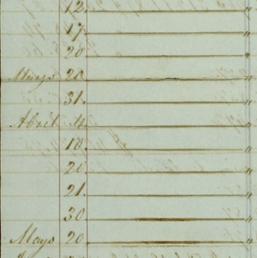 12. "
17. "
20. "
Marzo 20. "
31. "
Abril 4. "
18. "
20. "
21. "
30. "
Mayo 20. "